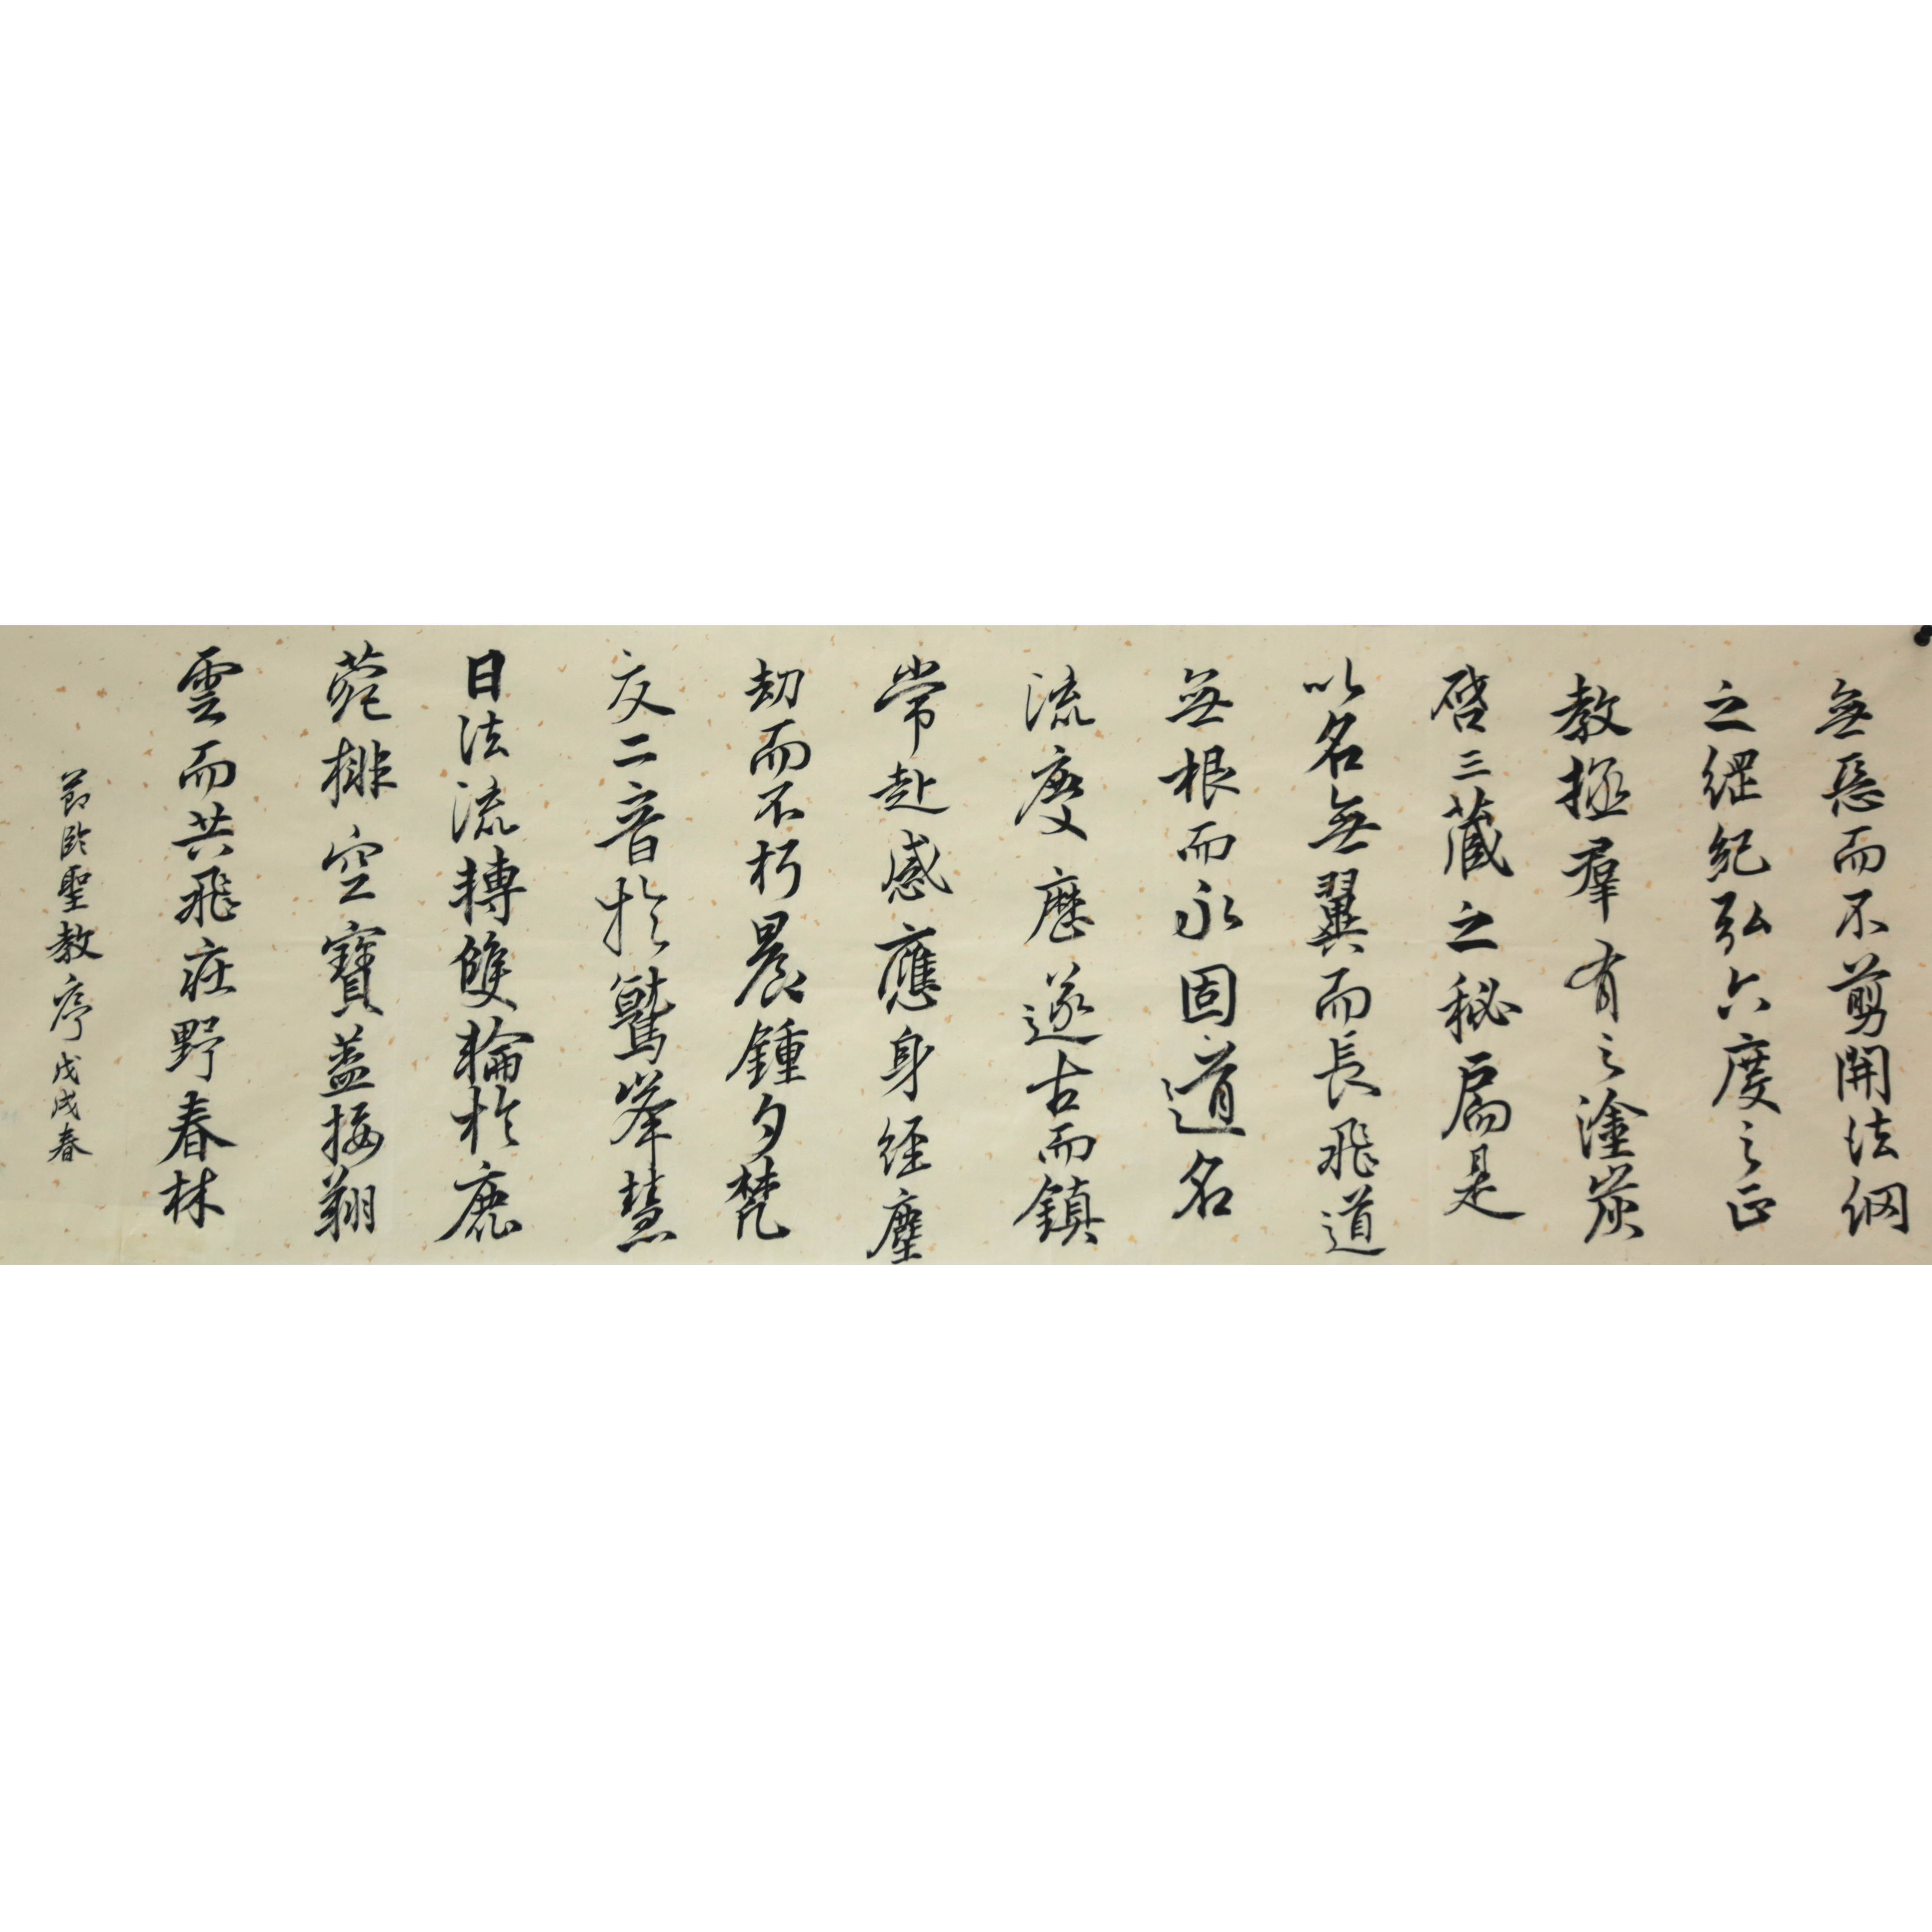 無惡而不剪開法網
之綱紀弘六度之正
教拯羣有之塗炭
啓三藏之秘扃是
以名無翼而長飛道
無根而永固道名
流慶歷遂古而鎮
常赴感應身經塵
劫而不朽晨鍾夕梵
交二音於鷲峯慧
日法流轉雙輪於鹿
菀排空寶蓋接翔
雲而共飛庄野春林
節臨聖教序戊戌春